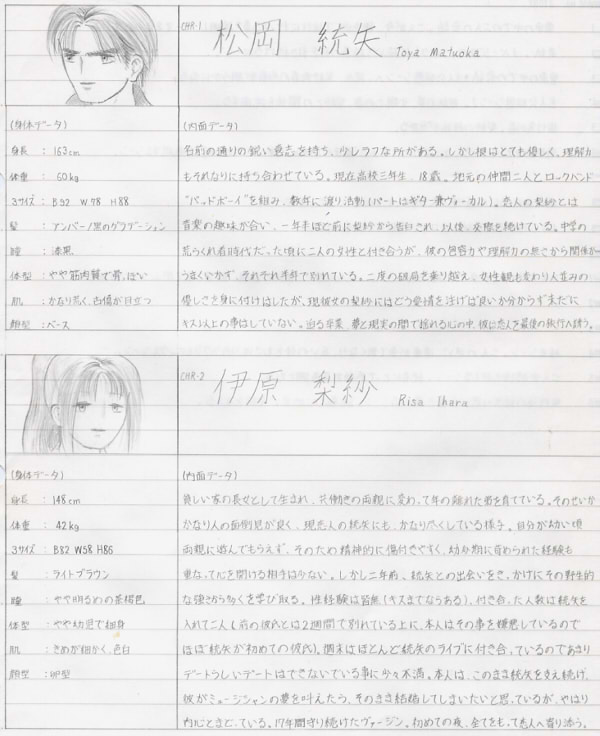 CHR-1
松岡 統矢 Toya Matuoka
(身体データ)
身長 : 163cm
体重 : 60kg
3サイズ : B92 W78 H88
髪 : アンバー/黒のグラデーション
瞳 : 漆黒
体型 : やや筋肉質で骨っぽい
肌 : かなり荒く、古傷が目立つ
顔型 : ベース
(内面データ)
名前の通りの鋭い意志を持ち、少しラフな所がある。しかし根はとても優しく、理解力
もそれなりに持ち合わせている。現在高校三年生、18歳。地元の仲間二人とロックバンド
"バッドボーイ"を組み、数年に渡り活動(パートはギター兼ヴォーカル)。恋人の梨紗とは
音楽の趣味が合い、一年半ほど前に梨紗から告白され、以後、交際を続けている。中学の
荒らくれ者時代だった頃に二人の女性と付き合うが、彼の包容力や理解力の無さから関係が
うまくいかず、それぞれ半年で別れている。二度の破局を乗り越え、女性観も変わり人並みの
優しさを身に付けはしたが、現彼女の梨紗にはどう愛情を注げば良いか分からずまだに
キス以上の事はしていない。迫る卒業、夢と現実の間で揺れる心の中、彼は恋人を最後の旅行へ誘う。
CHR-2
伊原 梨紗 Risa Ihara
(身体データ)
身長 : 148cm
体重 : 42kg
3サイズ : B82 W58 H86
髪 : ライトブラウン
瞳 : やや明るめの茶褐色
体型 : やや幼児で細身
肌 : きめが細かく、色白
顔型 : 卵型
(内面データ)
貧しい家の長女として生まれ、共働きの両親に変わって年の離れた弟を育てている。そのせいか
かなり人の面倒見が良く、現恋人の統矢にも、かなり尽くしている様子。自分が幼い頃
両親に遊んでもらえず、そのため精神的に傷付きやすく、幼少期に苛められた経験も
重なって心を開ける相手は少ない。しかし二年前、統矢との出会いをきっかけにその野生的
な強さから多くを学び取る。性経験は皆無(キスまでならある)、付き合った人数は統矢を
入れて二人(前の彼氏とは2週間で別れている上に、本人はその事を嫌悪しているので
ほぼ統矢が初めての彼氏)。週末はほとんど統矢のライブに付き合っているのであまり
デートらしいデートはできないでいる事に少々不満。本人は、このまま統矢を支え続け、
彼がミュージシャンの夢を叶えたら、そのまま結婚してしまいたいと思っているが、やはり
内心とまどっている。17年間守り続けたヴァージン。初めての夜、全てをもって恋人へ寄り添う。